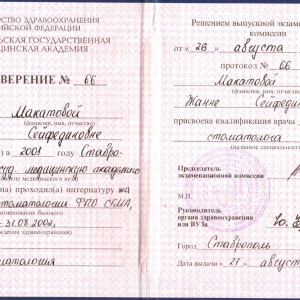 СТВО ЗДРАВООХРАНЕНИЯ
ИЙСКОЙ ФЕДЕРАЦИИ
ЛЬСКАЯ ГОСУДАРСТВЕННАЯ
ЦИНСКАЯ АКАДЕМИЯ
ВЕРЕНИЕ № 66
Макатовой
(фамилия, имя, отчество)
Сейфединовне
) в 2001 году Ставро-
медицинскую академию
на) проходил(а) интернатуру на
стоматологии ФПО СГМА,
31.08.2002,
матология
Решением выпускной экзаме
комиссии
от « 26 » августа
протокол № 66
Макатовой
(фамилия, имя, отчество)
Жанне Сейфедин
присвоена квалификация врача
стоматолога
(название специальности)
Председатель
экзаменационной комиссии
М.П.
Руководитель
органа здравоохранения
или ВУЗа
Город Ставрополь
Дата выдачи « 27 » август